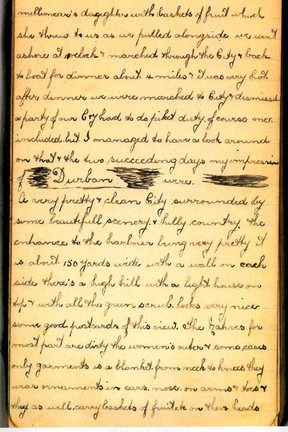 millionear's daughter with baskets of fruit which
she threw to us as we pulled alongside we went
ashore at oclock & marched through the City & back
to boat for dinner about 4 miles & it was very hot
after dinner we were marched to City & dismissed
a party of our Coy had to do picket duty, of course me
included but I managed to have a look around
on that & the two succeeding days my impression
of Durban were.
A very pretty & clean City surrounded by
some beautifull scenery & hilly country. The
entrance to the harbour being very pretty It
is about 150 yards wide with a wall on each
side there's a high hill with a light house on
top & with all the green scrub looks very nice
some good postcards of this view. The natives for
most part are dirty the women's outer & some cases
only garments is a blanket from neck to knees they
wear ornaments in ears, nose, on arms & toes &
they as well carry baskets of fruit etc on their heads